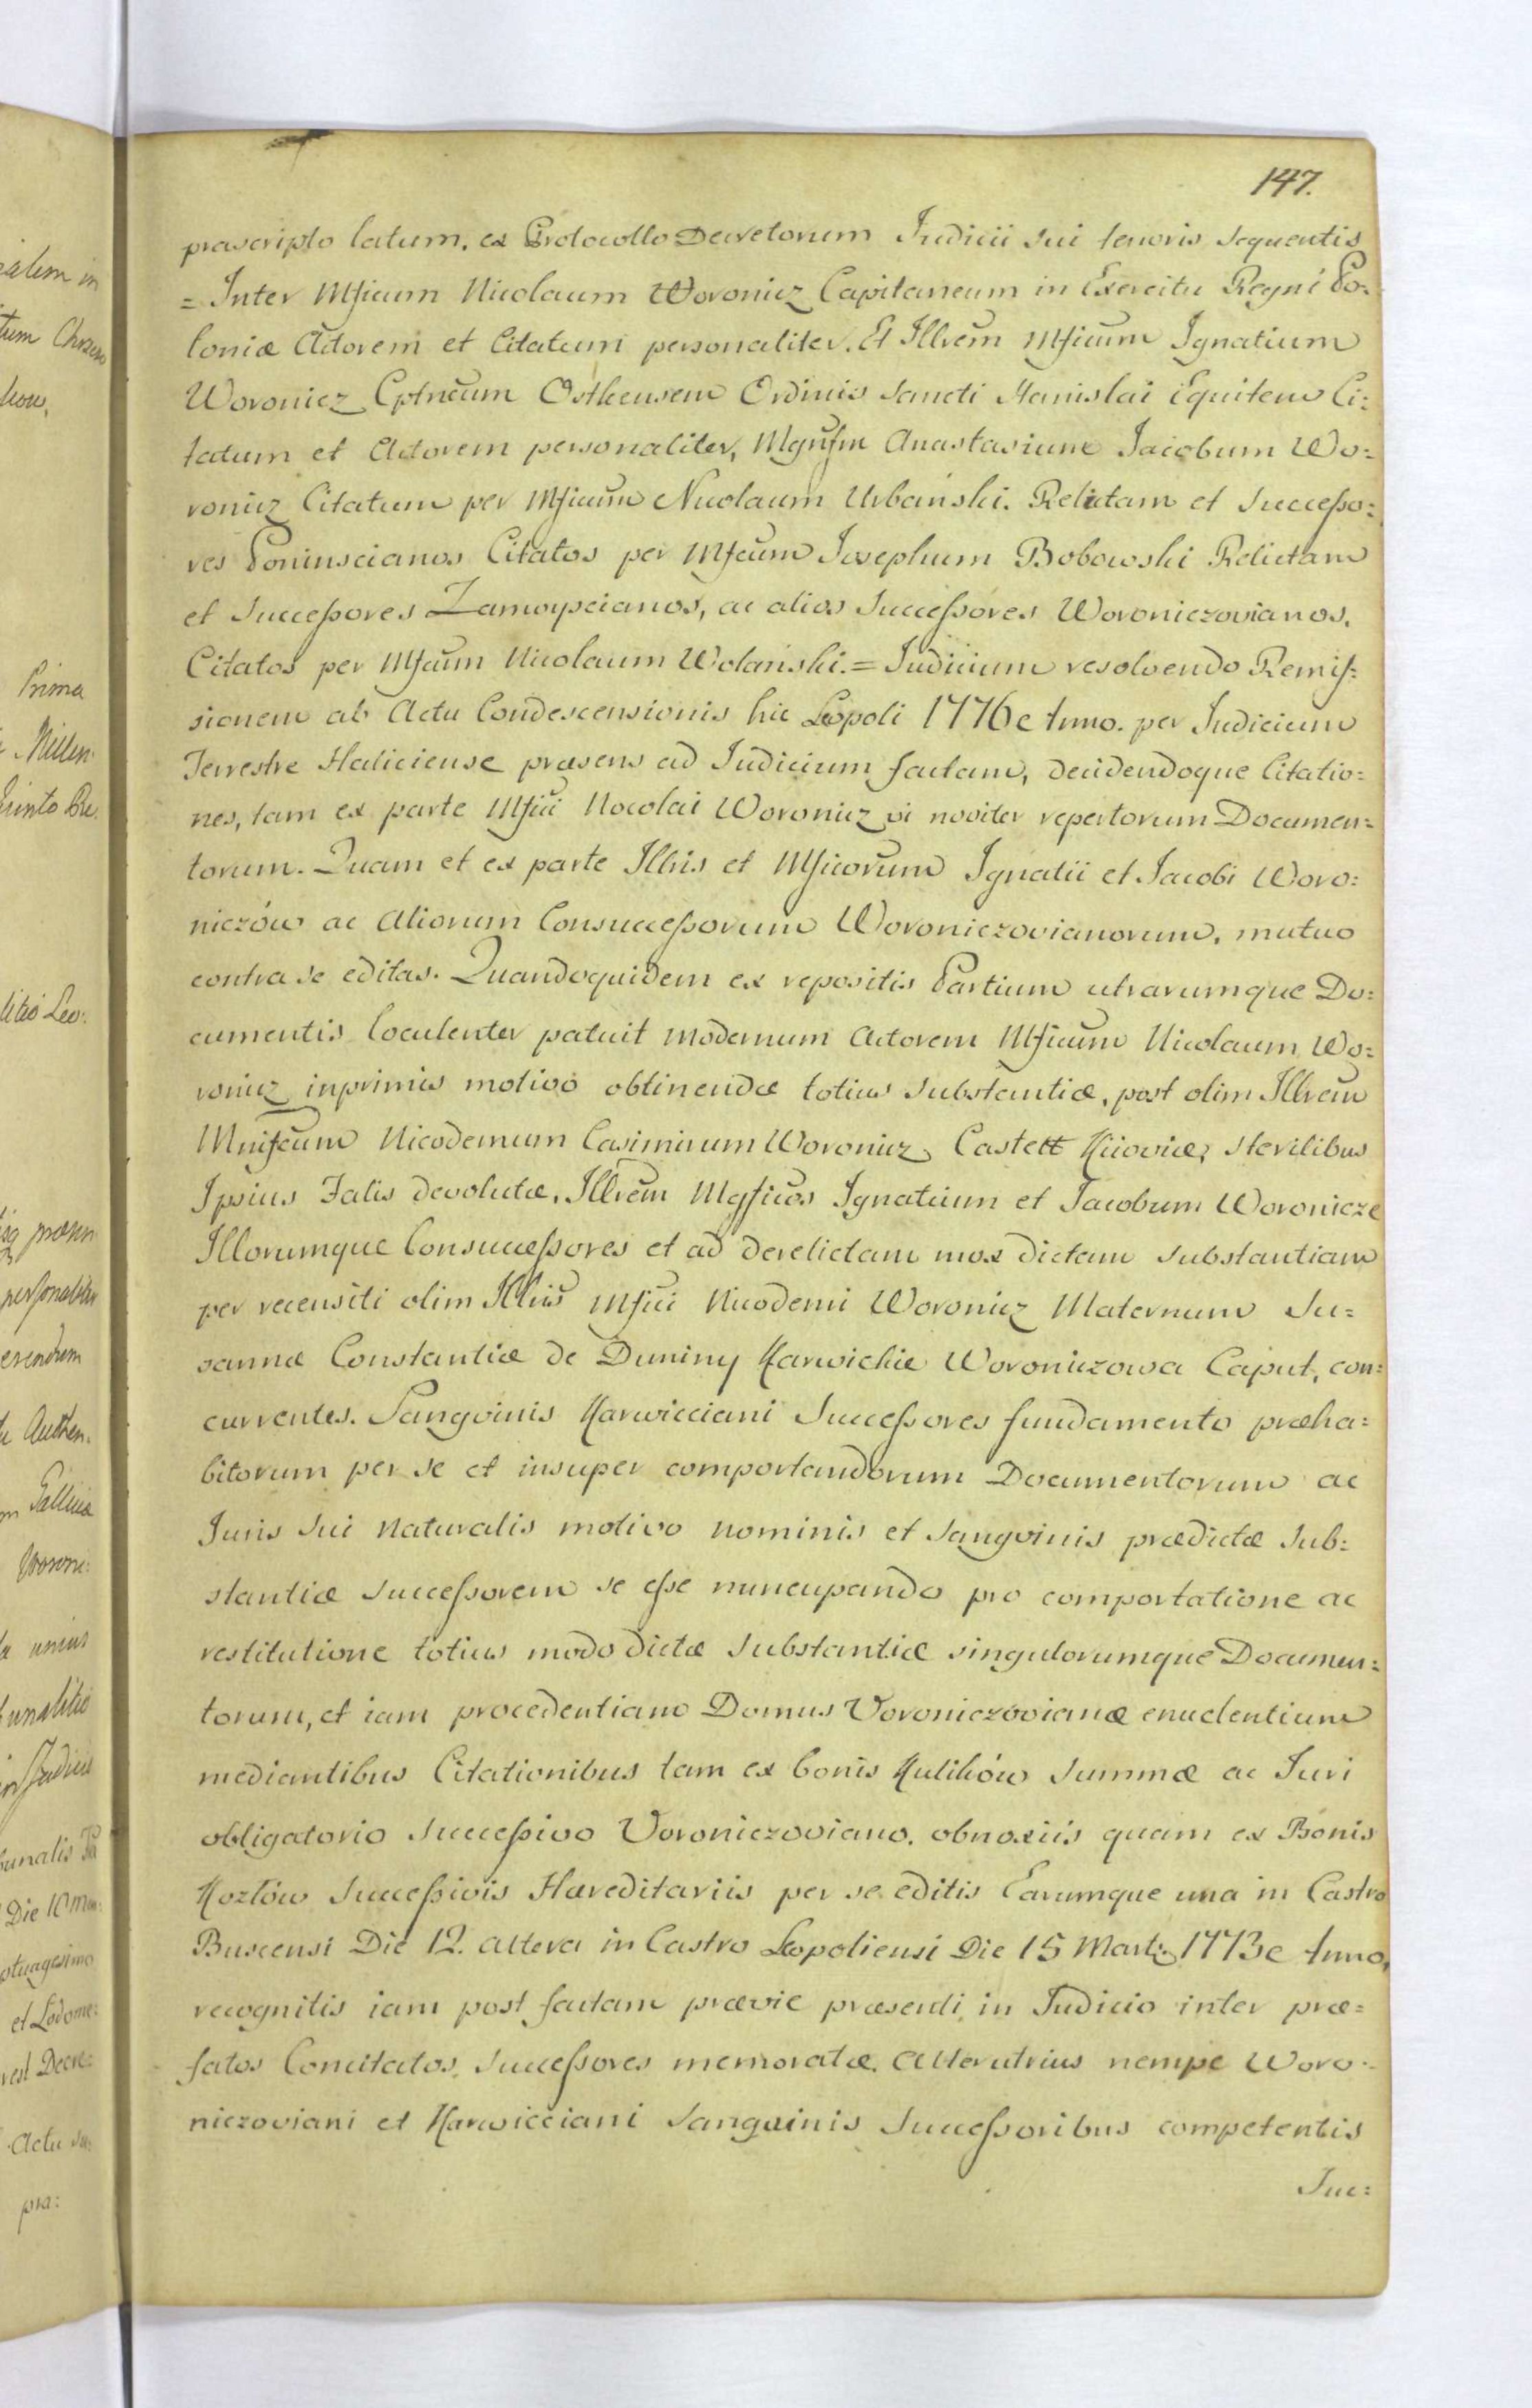 147.
præscripto latum. ex Protocollo Decretorum Judicii sui tenoris sequentis
= Inter Mficum Nicolaum Woronicz Capitaneum in Exercitu Regni Po:
loniæ Actorem et Citatum personaliter. Et Illrem Mficum Ignatium
Woronicz Cptneum Ostheensem Ordinis Sancti Stanislai Equitem Ci:
tatum et Actorem personaliter, Mgnfm Anastasium Jacobum Wo:
ronicz Citatum per Mficum Nicolaum Urbański. Relictam et Successo:
res Poninscianos Citatos per Mfcum Josephum Bobowski Relictam
et Successores Zamoyscianos, ac alios Successores Woroniczovianos.
Citatos per Mfcum Nicolaum Wolański. = Judicium resolvendo Remis:
sionem ab Actu Condescensionis hic Leopoli 1776e Anno. per Judicium
Terrestre Haliciense præsens ad Judicium factam, decidendoque Citatio:
nes, tam ex parte Mfici Nocolai Woronicz vi noviter repertorum Documen:
torum. Quam et ex parte Illris et Mficorum Ignatii et Jacobi Woro:
niczów ac Aliorum Consuccessorum Woroniczovianorum. mutuo
contra se editas. Quandoquidem ex repositis Partium utrarumque Do:
cumentis loculenter patuit modernum Actorem Mficum Nicolaum Wo:
ronicz inprimis motivo obtinendæ totius substantiæ, post olim Illrem
Mnifcum Nicodemum Casimirum Woronicz Castell Kiioviæ, sterilibus
Ipsius Fatis devolutæ, Illrem Mgficos Ignatium et Jacobum Woronicze
Illorumque Consuccessores et ad derelictam mox dictam substantiam
per recensiti olim Illris Mfici Nicodemi Woronicz Maternum Su:
sannæ Constantiæ de Duniny Karwickie Woroniczowa Caput, con:
currentes. Sangvinis Karwicciani Successores fundamento præha:
bitorum per se et insuper comportandorum Documentorum ac
Juris sui naturalis motivo nominis et sangvinis prædictæ sub:
stantiæ successorem se esse nuncupando pro comportatione ac
restitutione totius modo dictæ substantiæ singulorumque Documen:
torum, et iam procedentiam Domus Voroniczovianæ enuclentium
mediantibus Citationibus tam ex bonis Kulików Summæ ac Juri
obligatorio Successivo Voroniczoviano. obnoxiis quam ex Bonis
Kozłów Successivis Hæreditariis per se editis Earumque una in Castro
Buscensi Die 12. altera in Castro Leopoliensi Die 15 Marty 1773e Anno,
recognitis iam post factam prævie præsenti in Judicio inter præ:
fatos Concitatos Successores memoratæ. Alterutrius nempe Woro:
niczoviani et Karwicciani Sanguinis Successoribus competentis
Suc: